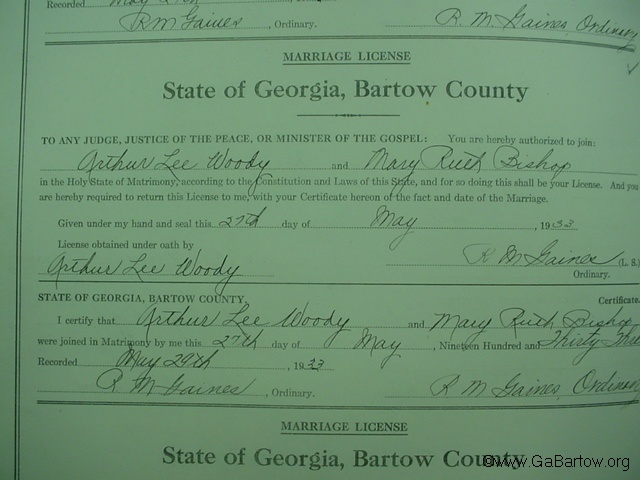 Recorded May 27th
R M Gaines, Ordinary. R. M. Gaines, Ordinary
MARRIAGE LICENSE
State of Georgia, Bartow County
TO ANY JUDGE, JUSTICE OF THE PEACE, OR MINISTER OF THE GOSPEL: You are hereby authorized to join:
Arthur Lee Woody and Mary Ruth Bishop
in the Holy State of Matrimony, according to the Constitution and Laws of this State, and for so doing this shall be your License. And you
are hereby required to return this License to me, with your Certificate hereon of the fact and date of the Marriage.
Given under my hand and seal this 27th day of May, 1933
License obtained under oath by R M Gaines (L. S.)
Arthur Lee Woody Ordinary.
STATE OF GEORGIA, BARTOW COUNTY, Certificate.
I certify that Arthur Lee Woody and Mary Ruth Bishop
were joined in Matrimony by me this 27th day of May, Nineteen Hundred and Thirty Three
Recorded May 29th, 1933
R M Gaines, Ordinary. R M Gaines, Ordinary
MARRIAGE LICENSE
State of Georgia, Bartow County
©www.GaBartow.org